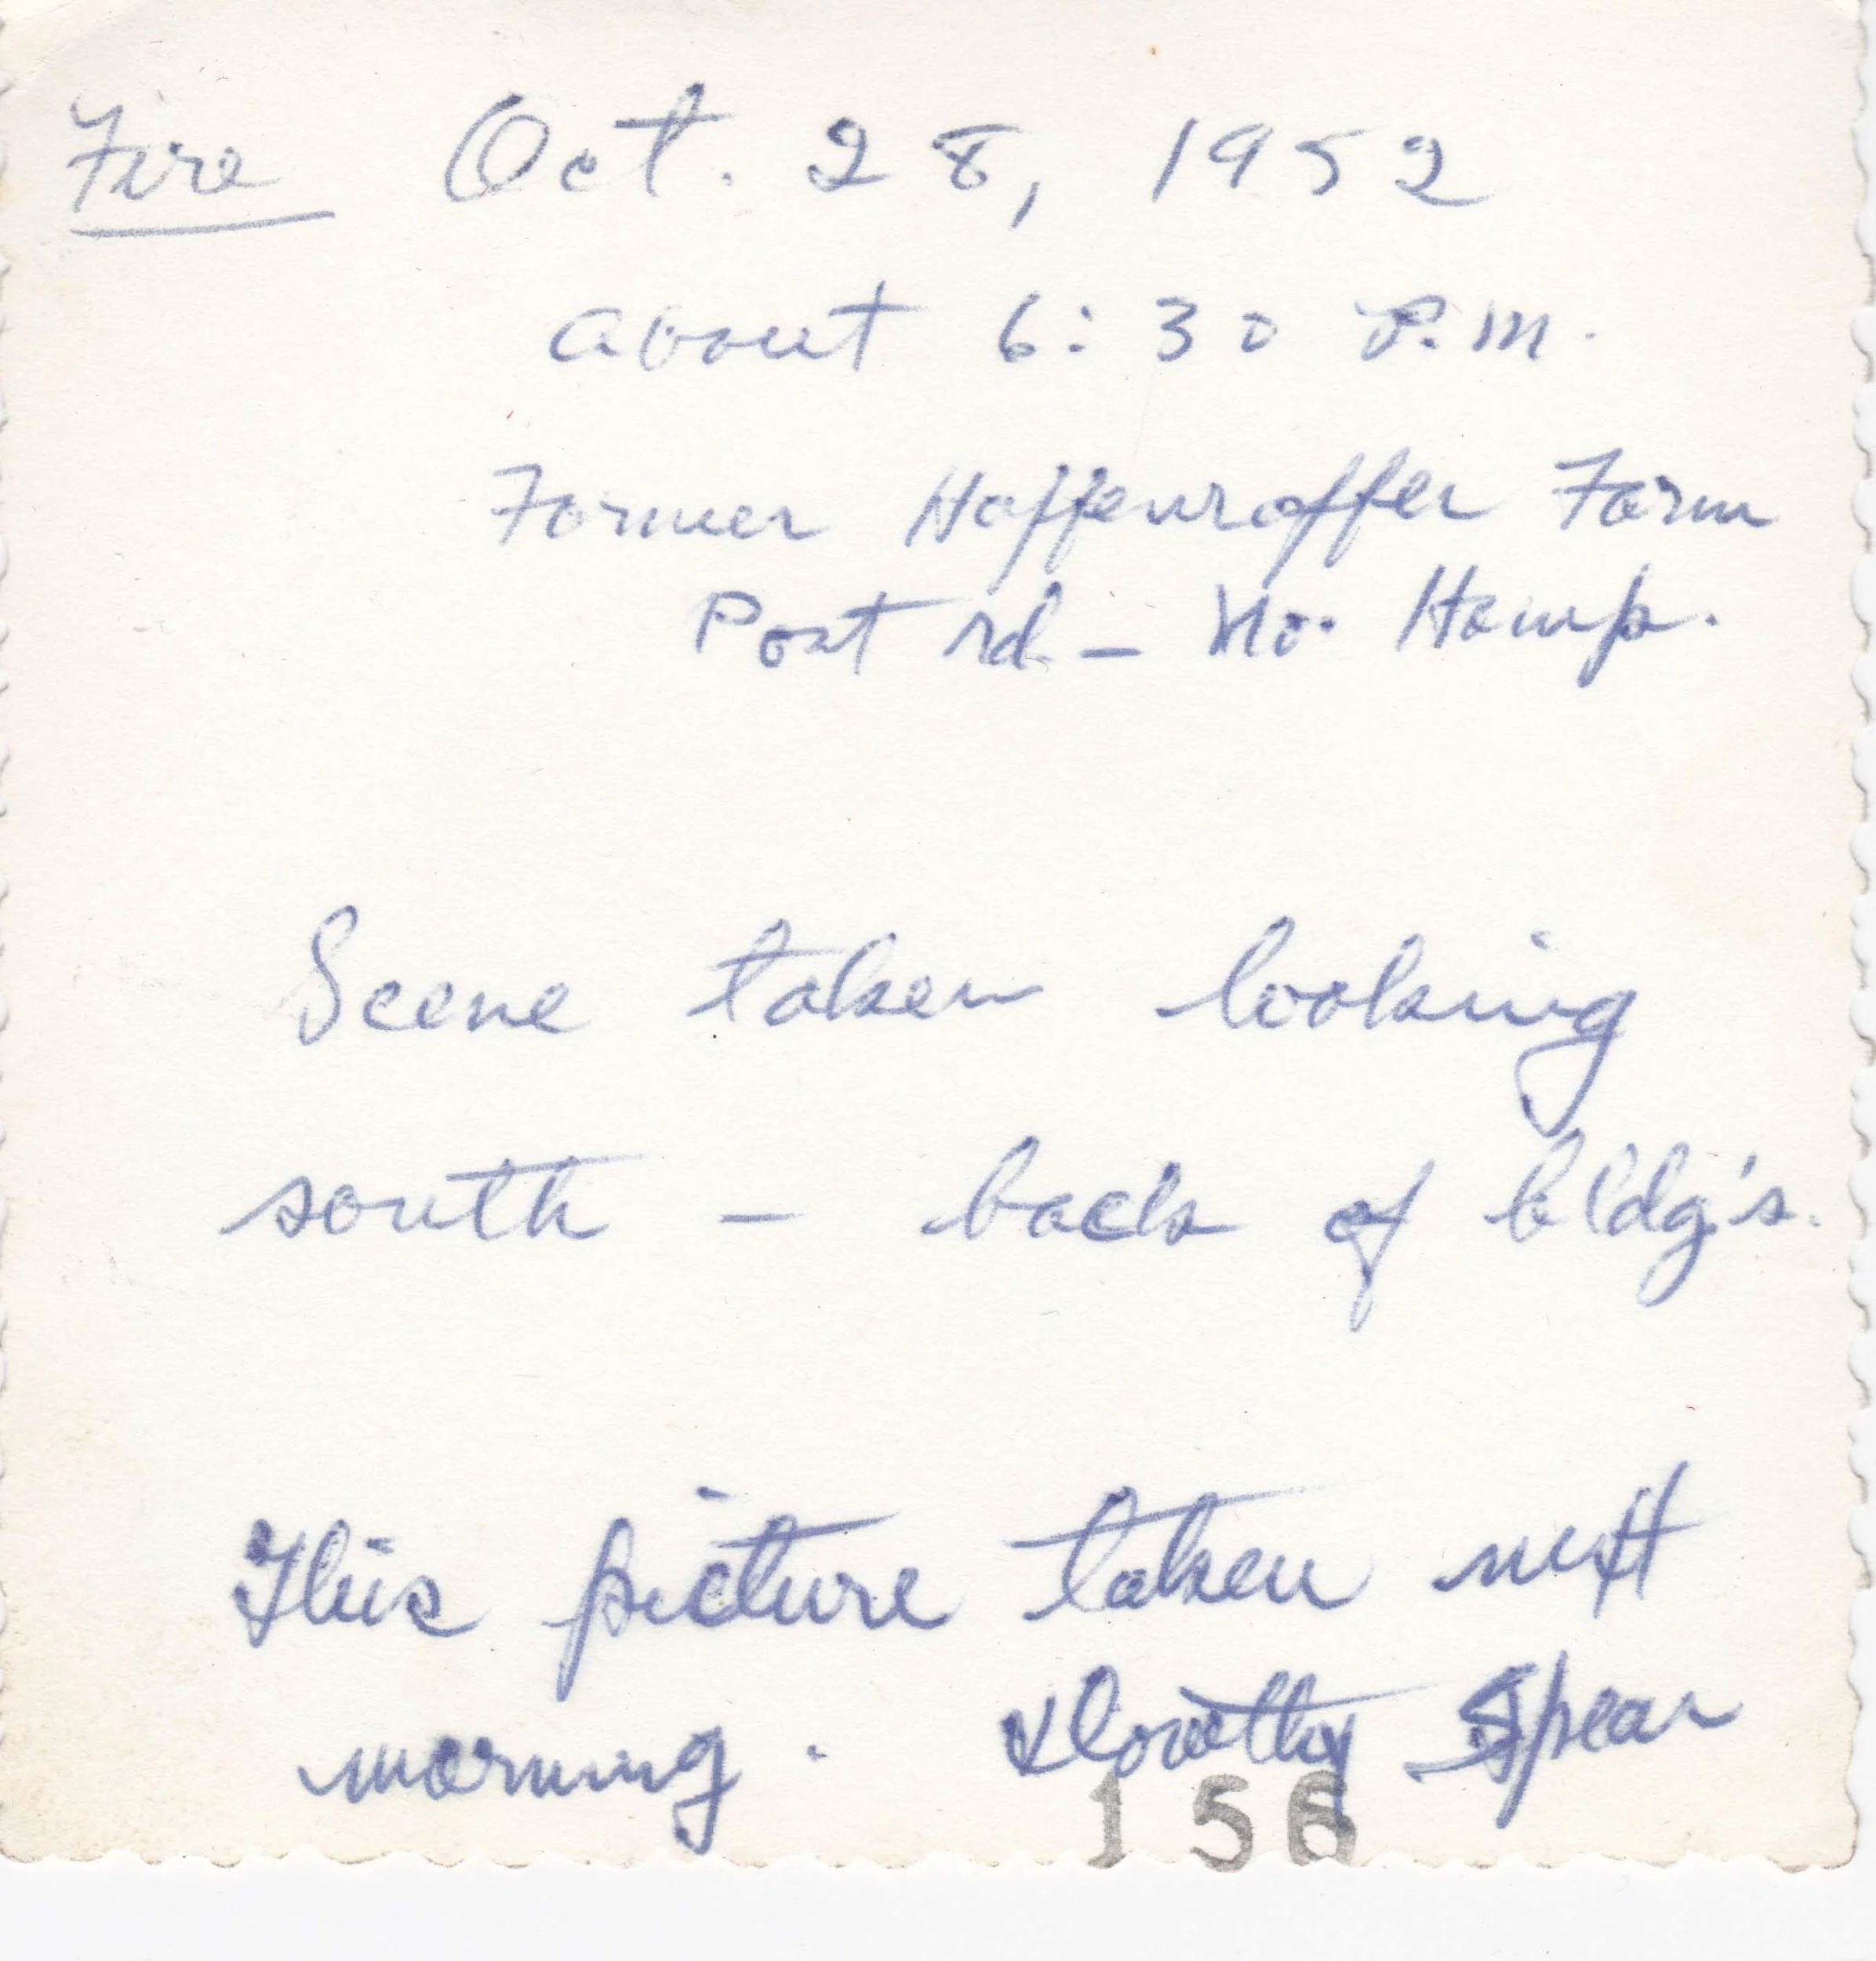 Fire Oct. 28, 1952
about 6:30 P.M.
Former Haffenroffer Farm
Post rd – No. Hamp.
Scene taken looking
south – back of bldg's.
This picture taken next
morning. Dorothy Spear
156